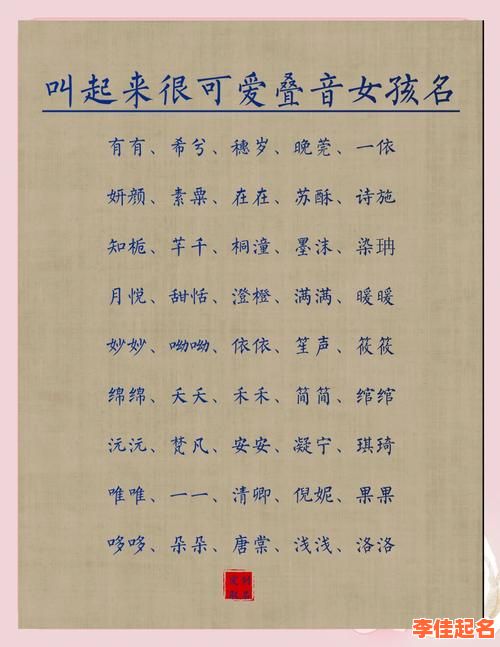 叫起来很可爱叠音女孩名
有有、希兮、穗岁、晚莞、一依
妍颜、素粟、在在、苏酥、诗施
知栀、芊千、桐潼、墨沫、染珃
月悦、甜恬、澄橙、满满、暖暖
妙妙、呦呦、依依、笙声、筱筱
绵绵、夭夭、禾禾、简简、绾绾
沅沅、梵凡、安安、凝宁、琪琦
唯唯、一一、清卿、倪妮、果果
哆哆、朵朵、唐棠、浅浅、洛洛
李佳起名